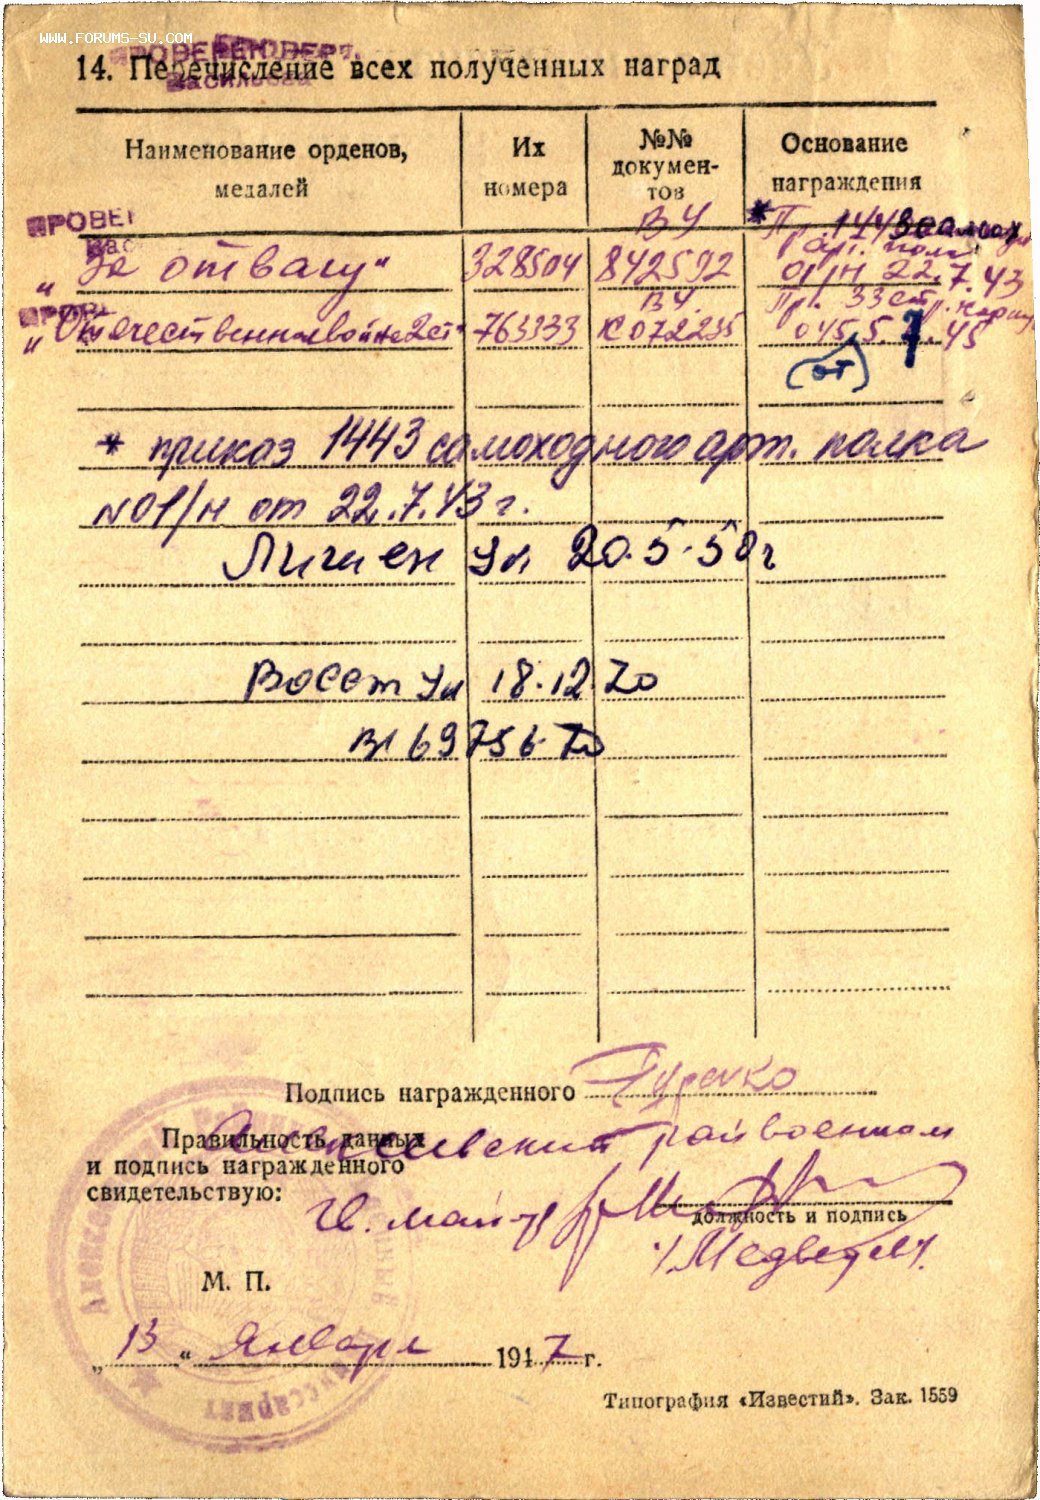 WWW.FORUMS-SU.COM
ПРОВЕРЕН
14. Перечисление всех полученных наград
Наименование орденов, медалей
Их номера
№№ документов
Основание награждения
ПРОВЕР
„За отвагу"
328504
ВУ 842592
* Пр. 1443 самох арт. полк 01/н 22.7.43
„Отечественная война 2 ст"
763333
ВУ К 072235
Пр. 33 стр. корп 045 5.7.45
(от)
* приказ 1443 самоходного арт. полка
№ 01/н от 22.7.43 г.
Лишен Ук 20.5.50 г
Восст Ук 18.12.70
Вх 69756-70
Подпись награжденного
Правильность данных
и подпись награжденного
свидетельствую:
райвоенком
Гв. майор
должность и подпись
/Медведев/
М. П.
„13" Января 1947 г.
Типография «Известий». Зак. 1559